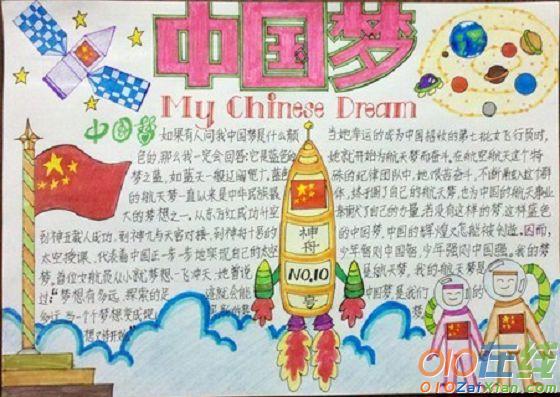 中国梦
My Chinese Dream
中国梦
如果有人问我中国梦是什么颜
色的,那么我一定会回答:它是蓝色的
梦之蓝,如蓝天一般辽阔
的航天梦一直以来是中华民族最
大的梦想之一。从东方红成功升空
到神五载人成功,到神九与天宫对接,到神舟十号的
太空授课,代表着中国正一步一步地实现自己的太空
梦。首位女航员从小就梦想一飞冲天,她曾说
过:"梦想有多远,探索的足
当她幸运的成为中国招收的第七批女飞行员时,
她就开始为航天梦而奋斗。在航空航天这个特
殊的纪律团队中,她艰苦奋斗,不断融入这个群
体,终于圆了自己的航天梦,也为中国的航天事业
奉献了自己的力量。若没有这样的梦,这样蓝色
的中国梦,中国的辉煌怎能被创造。因而,
少年智则中国智,少年强则中国强。我的梦
是航天梦,我的航天梦是
中国梦,是我们
的
梦
神舟
NO.10
号
010在线
010ZaiXian.com